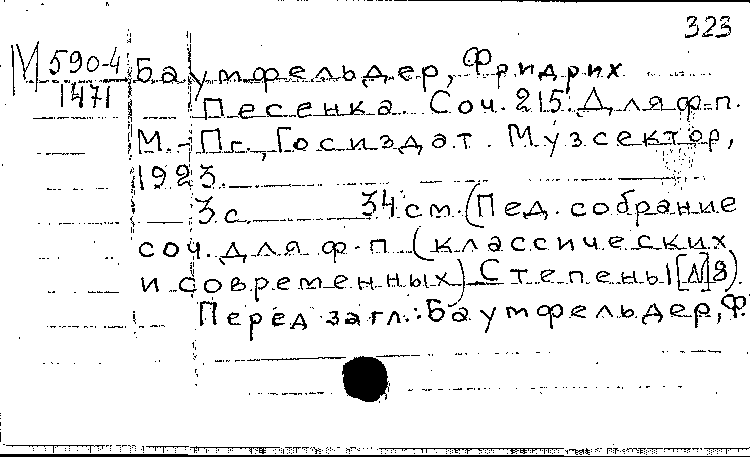 323
М 590-4 Баумфельдер, Фридрих
1471
Песенка. Соч. 215. Для ф-п.
М.-Пг., Госиздат. Музсектор,
1923.
3 с. 34 см. (Пед. собрание
соч. для ф-п (классических
и современных) Степень I [N] 8).
Перед загл.: Баумфельдер, Ф.